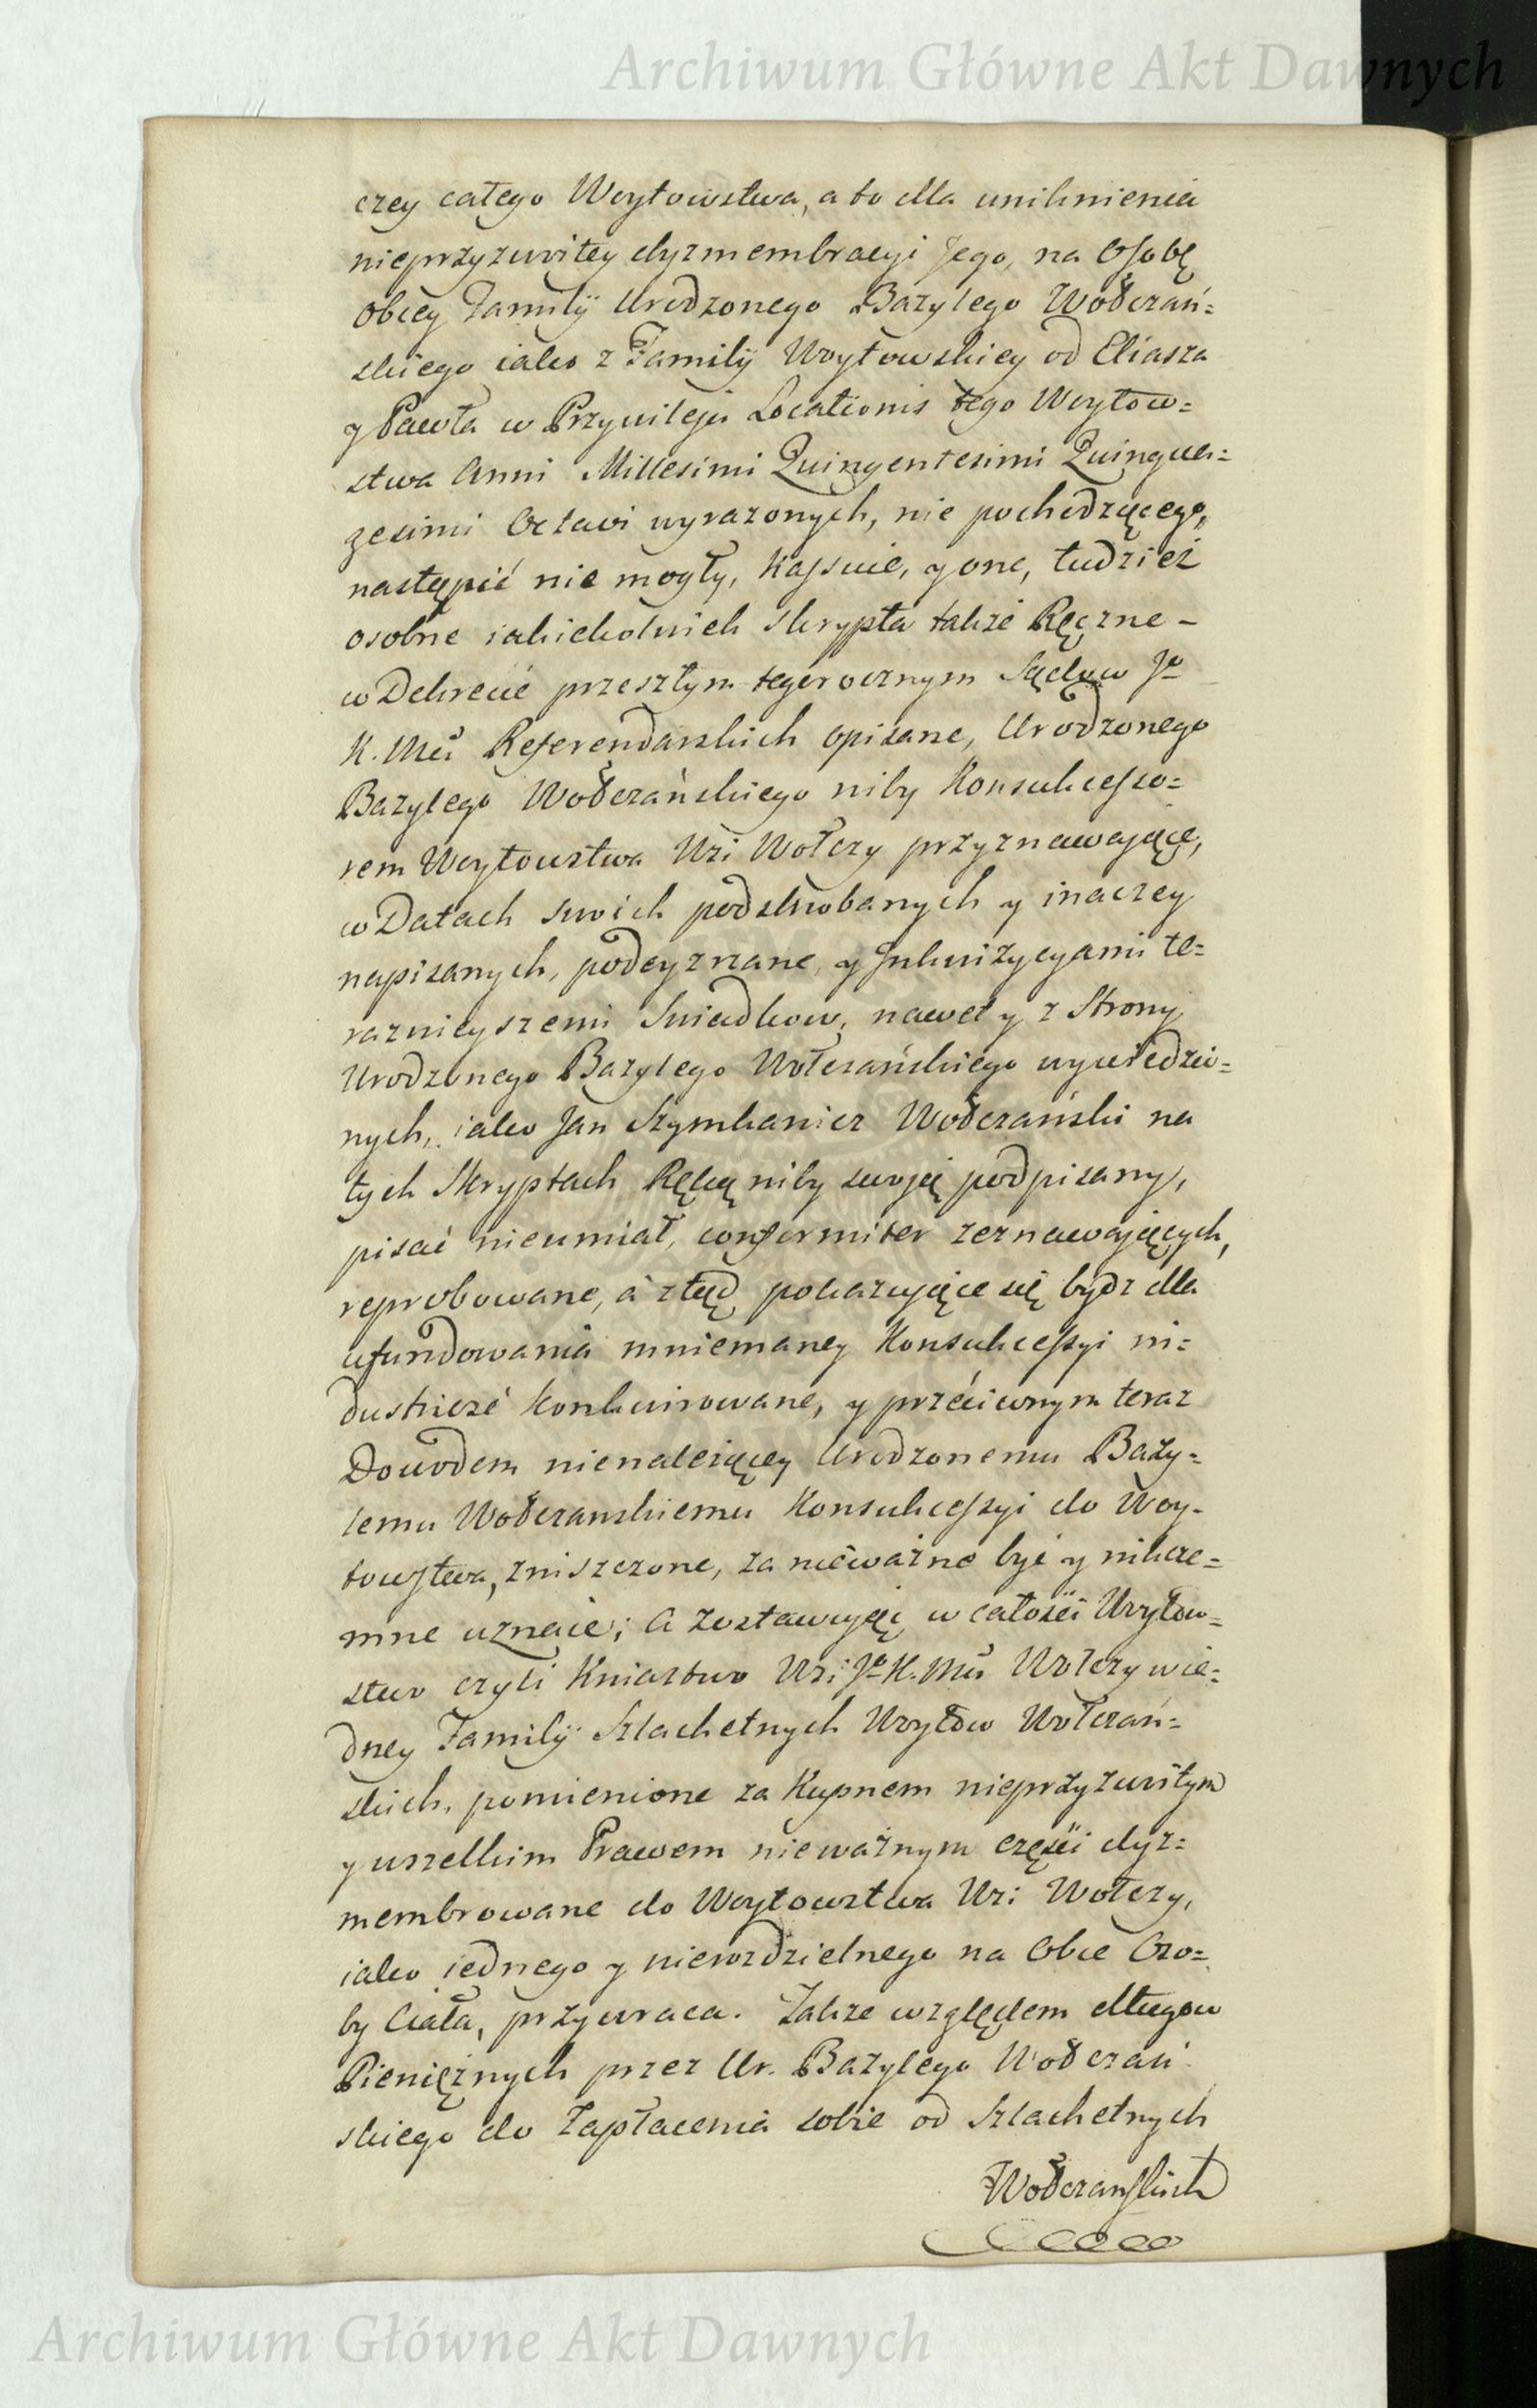 Archiwum Główne Akt Dawnych
czey całego Woytowstwa, a to dla uniknienia
nieprzyzwoitey dyzmembracyi Jego, na Osobę
Obcey Familÿ Urodzonego Bazylego Wołczań=
skiego iako z Familÿ Woytowskiey od Eliasza
y Pawła w Przywileju Locationis tego Woytow=
stwa Anni Millesimi Quingentesimi Quinqua=
gesimi Octavi wyrazonych, nie pochodzącego,
nastąpić nie mogły, kassuie, y one, tudzież
osobne iakiekolwiek skrypta także Ręczne -
w Dekrecie przeszłym tegorocznym Sądow Jo
K. Mci Referendarskich opisane, Urodzonego
Bazylego Wołczańskiego niby Konsukcesso=
rem Woytowstwa Wsi Wołczy przyznawające,
w Datach swoich podskrobanych y inaczey
napisanych, podeyzrzane, y Inkwizycyami te=
raznieyszemi Swiadkow, nawet y z Strony
Urodzonego Bazylego Wołczańskiego wywiedzio=
nych, iako Jan Szymkanicz Wołczański na
tych Skryptach Ręką niby swoją podpisany,
pisać nieumiał, conformiter zeznawających,
reprobowane, á ztąd pokazujące się bydz dla
ufundowania mniemaney Konsukcessyi in=
dustriose konkwirowane, y przeciwnym teraz
Dowodem nienależącey Urodzonemu Bazy=
lemu Wołczanskiemu Konsukcessyi do Woy-
towstwa, zniszczone, za nieważne być y nikcze=
mne uznaie; A zostawując w całości Woytow=
stwo czyli Kniaztwo Wsi Jo K. Mci Wołczy w ie=
dney Familÿ Szlachetnych Woytow Wołczań=
skich, pomienione za Kupnem nieprzyzwoitym
y wszelkim Prawem nieważnym części dyz=
membrowane do Woytowstwa Wsi Wołczy,
iako iednego y nierozdzielnego na Obce Oso=
by Ciała, przywraca. Także względem długow
Pieniężnych przez Ur. Bazylego Wołczań
skiego do Zapłacenia sobie od Szlachetnych
Wołczanskich
Archiwum Główne Akt Dawnych